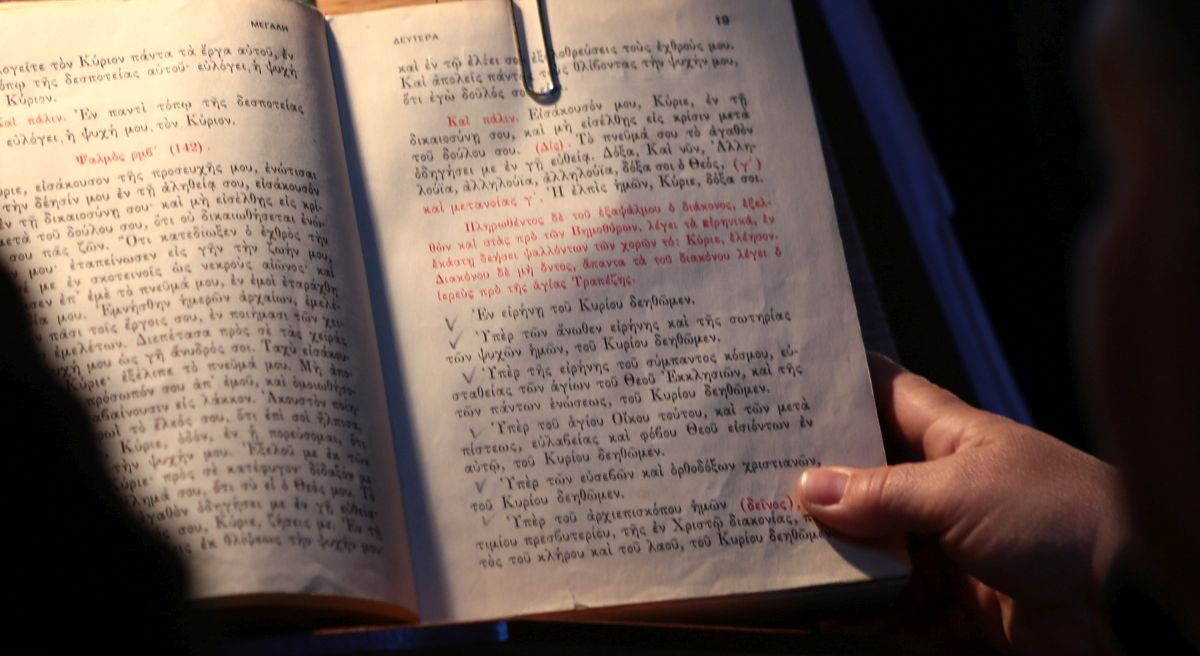 ΜΕΓΑΛΗ
λογεῖτε τὸν Κύριον πάντα τὰ ἔργα αὐτοῦ, ἐν
τόπῳ τῆς δεσποτείας αὐτοῦ· εὐλόγει, ἡ ψυχή
Κύριον.
Καὶ πάλιν. Ἐν παντὶ τόπῳ τῆς δεσποτείας
εὐλόγει, ἡ ψυχή μου, τὸν Κύριον.
Ψαλμὸς ρμβ' (142).
ριε, εἰσάκουσον τῆς προσευχῆς μου, ἐνώτισαι
τὴν δέησίν μου ἐν τῇ ἀληθείᾳ σου, εἰσάκουσόν
ἐν τῇ δικαιοσύνῃ σου· καὶ μὴ εἰσέλθῃς εἰς κρί-
μετὰ τοῦ δούλου σου, ὅτι οὐ δικαιωθήσεται ἐνώ-
σου πᾶς ζῶν. Ὅτι κατεδίωξεν ὁ ἐχθρὸς τὴν
μου· ἐταπείνωσεν εἰς γῆν τὴν ζωήν μου,
με ἐν σκοτεινοῖς ὡς νεκροὺς αἰῶνος· καὶ
σεν ἐπ' ἐμὲ τὸ πνεῦμά μου, ἐν ἐμοὶ ἐταράχθη
δία μου. Ἐμνήσθην ἡμερῶν ἀρχαίων, ἐμελέ-
πᾶσι τοῖς ἔργοις σου, ἐν ποιήμασι τῶν χει-
ἐμελέτων. Διεπέτασα πρὸς σὲ τὰς χεῖράς
χή μου ὡς γῆ ἄνυδρός σοι. Ταχὺ εἰσάκου-
Κύριε· ἐξέλιπε τὸ πνεῦμά μου. Μὴ ἀπο-
πρόσωπόν σου ἀπ' ἐμοῦ, καὶ ὁμοιωθήσο-
αβαίνουσιν εἰς λάκκον. Ἀκουστὸν ποίη-
πρωῒ τὸ ἔλεός σου, ὅτι ἐπὶ σοὶ ἤλπισα,
Κύριε, ὁδόν, ἐν ᾗ πορεύσομαι, ὅτι
τὴν ψυχήν μου. Ἐξελοῦ με ἐκ τῶν
Κύριε· πρὸς σὲ κατέφυγον· δίδαξόν με
λημά σου, ὅτι σὺ εἶ ὁ Θεός μου. Τὸ
ἀγαθὸν ὁδηγήσει με ἐν γῇ εὐθείᾳ·
σου, Κύριε, ζήσεις με. Ἐν τῇ
εις ἐκ θλίψεως τὴν ψυχήν μου
ΔΕΥΤΕΡΑ
19
καὶ ἐν τῷ ἐλέει σου ἐξολοθρεύσεις τοὺς ἐχθρούς μου.
Καὶ ἀπολεῖς πάντας τοὺς θλίβοντας τὴν ψυχήν μου,
ὅτι ἐγὼ δοῦλός σου
Καὶ πάλιν. Εἰσάκουσόν μου, Κύριε, ἐν τῇ
δικαιοσύνῃ σου, καὶ μὴ εἰσέλθῃς εἰς κρίσιν μετὰ
τοῦ δούλου σου. (Δίς). Τὸ πνεῦμά σου τὸ ἀγαθὸν
ὁδηγήσει με ἐν γῇ εὐθείᾳ. Δόξα, Καὶ νῦν, Ἀλλη-
λούϊα, ἀλληλούϊα, ἀλληλούϊα, δόξα σοι ὁ Θεός, (γ')
καὶ μετανοίας γ'. Ἡ ἐλπὶς ἡμῶν, Κύριε, δόξα σοι.
Πληρωθέντος δὲ τοῦ ἑξαψάλμου ὁ διάκονος, ἐξελ-
θὼν καὶ στὰς πρὸ τῶν Βημοθύρων, λέγει τὰ εἰρηνικά, ἐν
ἑκάστῃ δεήσει ψαλλόντων τῶν χορῶν τό: Κύριε, ἐλέησον.
Διακόνου δὲ μὴ ὄντος, ἅπαντα τὰ τοῦ διακόνου λέγει ὁ
Ἱερεὺς πρὸ τῆς ἁγίας Τραπέζης.
Ἐν εἰρήνῃ τοῦ Κυρίου δεηθῶμεν.
Ὑπὲρ τῶν ἄνωθεν εἰρήνης καὶ τῆς σωτηρίας
τῶν ψυχῶν ἡμῶν, τοῦ Κυρίου δεηθῶμεν.
Ὑπὲρ τῆς εἰρήνης τοῦ σύμπαντος κόσμου, εὐ-
σταθείας τῶν ἁγίων τοῦ Θεοῦ Ἐκκλησιῶν, καὶ τῆς
τῶν πάντων ἑνώσεως, τοῦ Κυρίου δεηθῶμεν.
Ὑπὲρ τοῦ ἁγίου Οἴκου τούτου, καὶ τῶν μετὰ
πίστεως, εὐλαβείας καὶ φόβου Θεοῦ εἰσιόντων ἐν
αὐτῷ, τοῦ Κυρίου δεηθῶμεν.
Ὑπὲρ τῶν εὐσεβῶν καὶ ὀρθοδόξων χριστιανῶν,
τοῦ Κυρίου δεηθῶμεν.
Ὑπὲρ τοῦ ἀρχιεπισκόπου ἡμῶν (δεῖνος),
τιμίου πρεσβυτερίου, τῆς ἐν Χριστῷ διακονίας,
τὸς τοῦ κλήρου καὶ τοῦ λαοῦ, τοῦ Κυρίου δεηθῶμεν